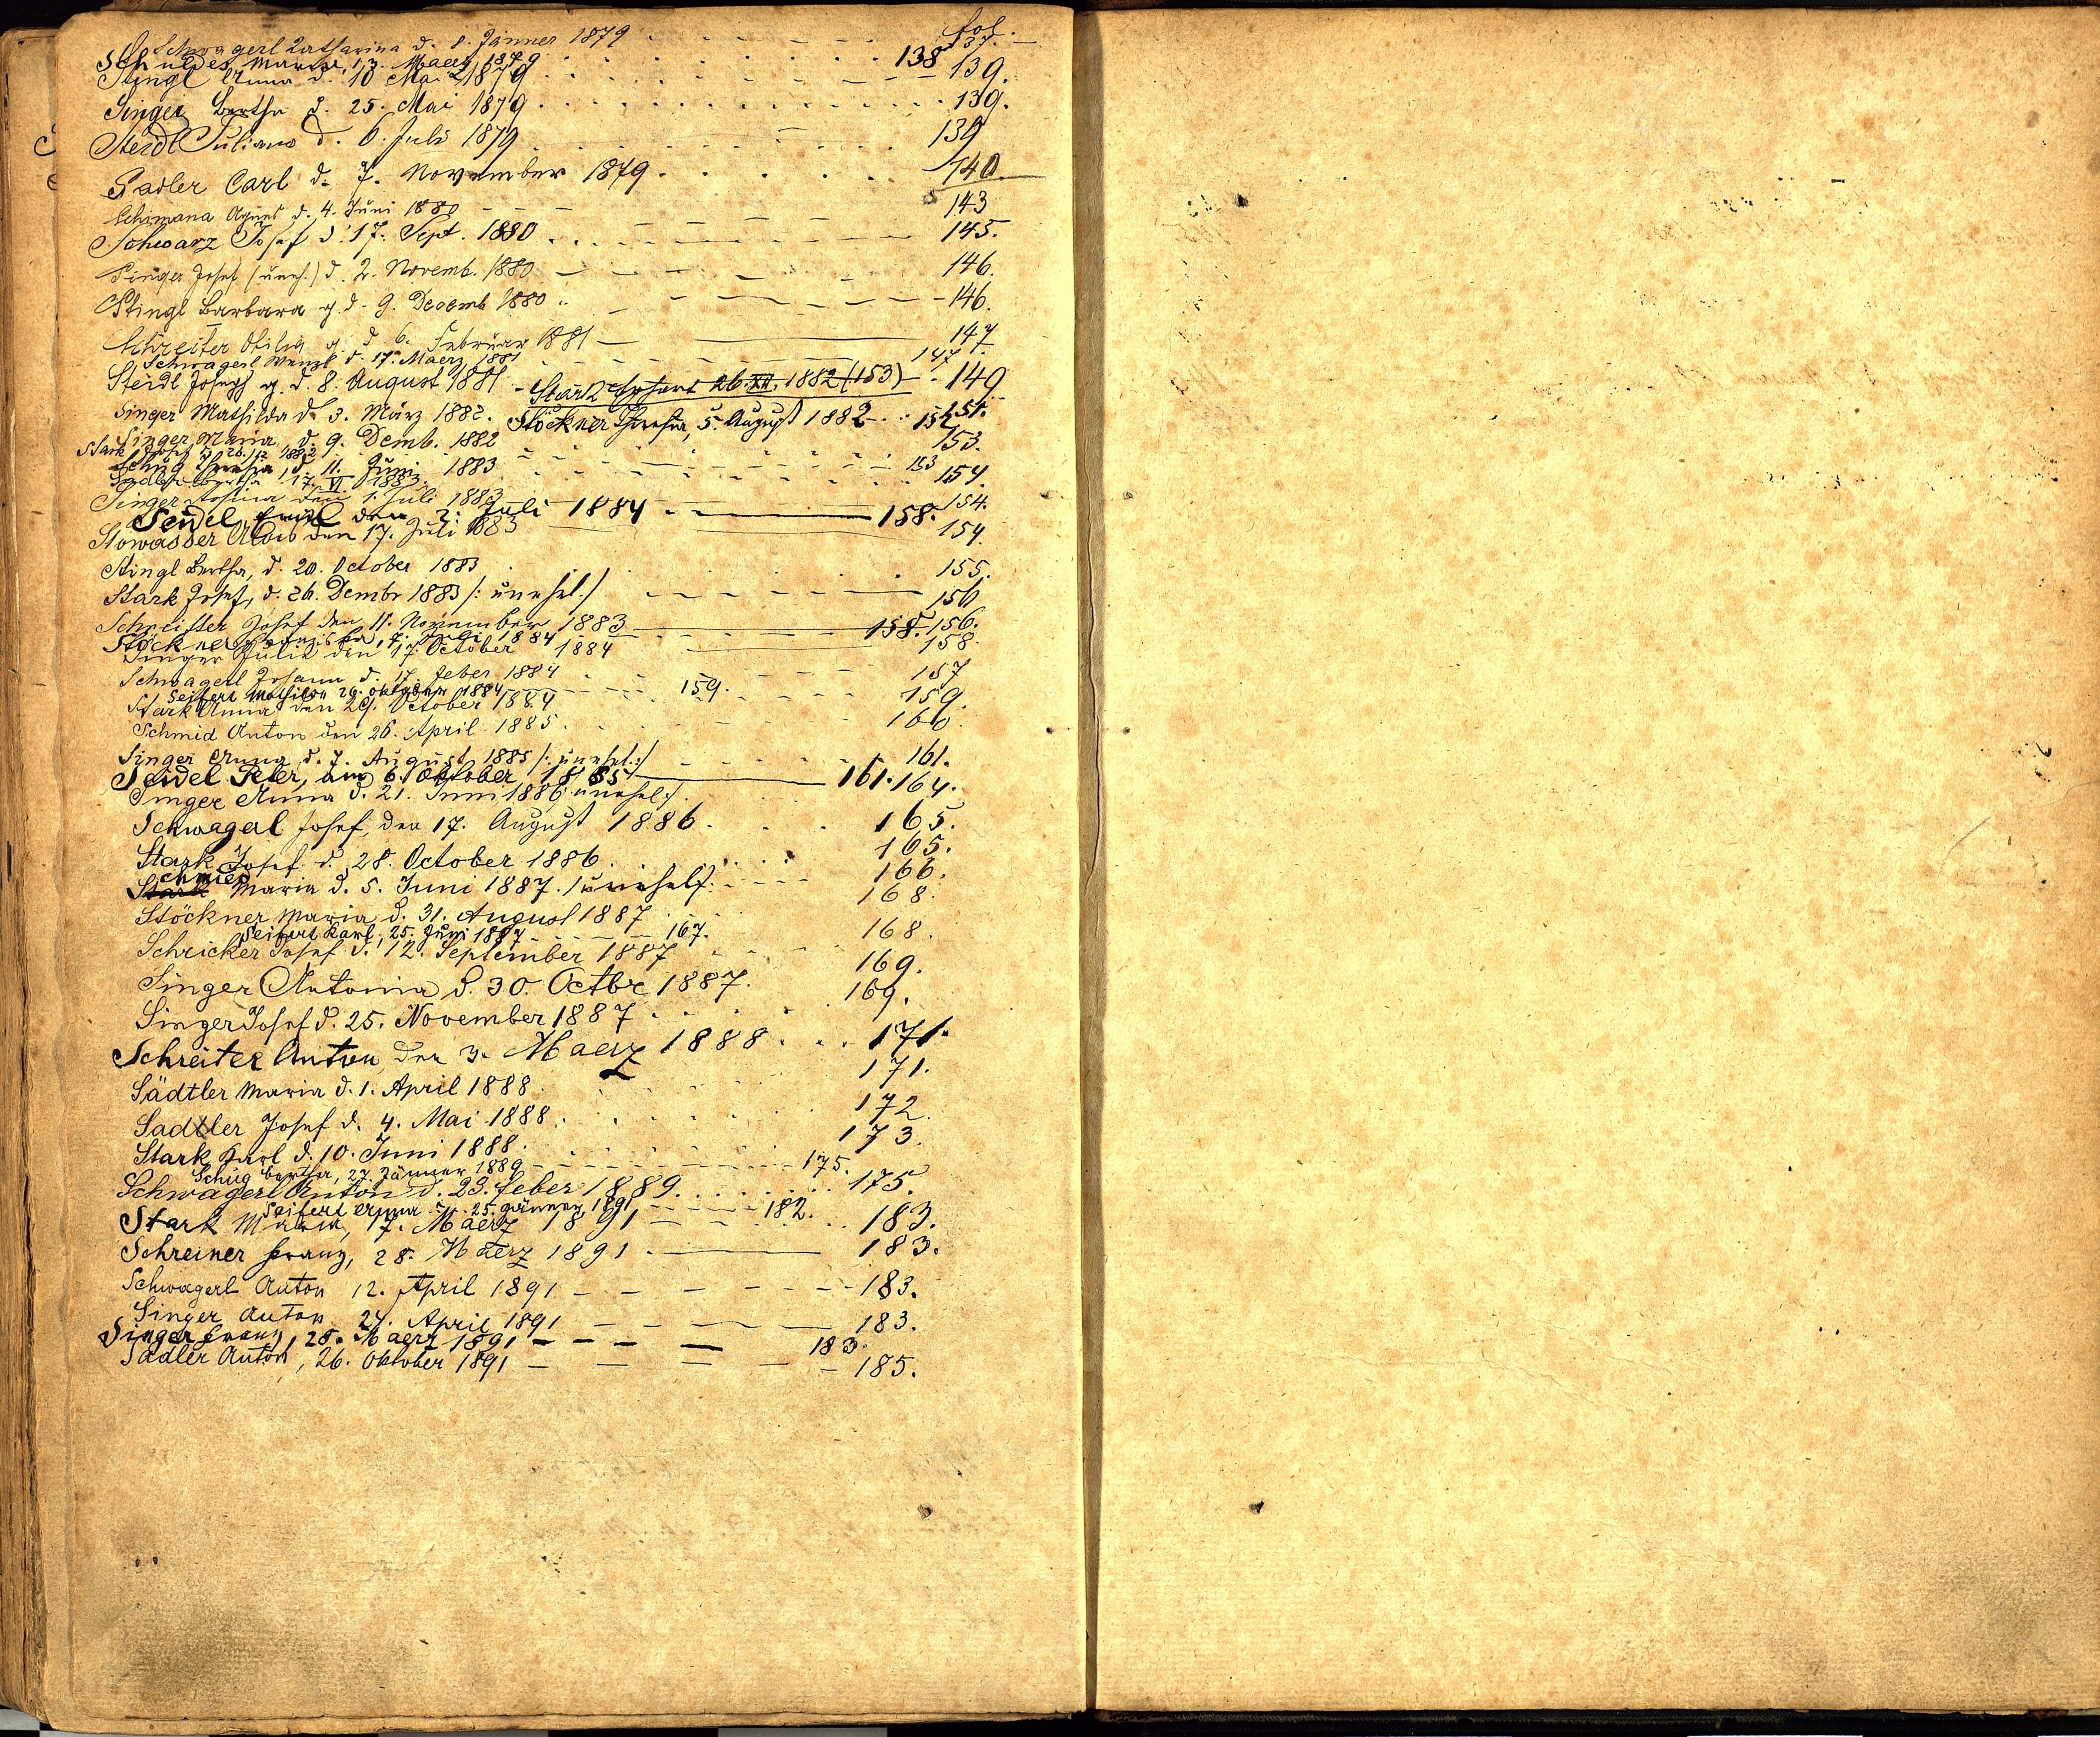 fol.
Schwagerl Katharina d. 8. Jänner 1879 . - - - - - 137. -
Schuldes Maria, 13. Maerz 1879 . . . . . . . . 138
Stingl Anna d. 10 Mai 1879 . . . . - - - 139.
Singer Bertha d. 25. Mai 1879 . . . . . . . . . . 139.
Steidl Juliana d. 6. Juli 1879 . . . . . . . 139
Sadler Carl d. 7. November 1879 . . . . . . 140.
Schimana Agnes d. 4. Juni 1880 - - - - - - 143
Schwarz Josef d. 17. Sept. 1880 . . . - - - - 145.
Singer Josef (uneh.) d. 2. Novemb. 1880 - - - - - 146.
Stingl Barbara g. d. 9. Decemb 1880 .. - - - - - 146.
Schreiter Otilia g. d. 6. Februar 1881 - 147
Schwagerl Wenzl d. 17. Maerz 1881 - - - - - 147.
Steidl Joseph g. d. 8. August 1881 - Stark Josef 26. XII. 1882 (153) - - 149
Singer Mathilda d. 3. März 1882. Stöckner Theresia, 5. August 1882 - . . 152 151.
Singer Maria, d. 9. Demb. 1882 - - - - 153.
Stark Josef d. 26. 12 1882 . . . . . 153
Schug Theresia, d. 11. Juni 1883 . . . . . 154.
Sadler Bertha 17. VI 1883.
Singer Rosina den 1. Juli 1883 154.
Seidel Emil den 2. Juli 1884 - . - 158.
Stowasser Alois den 17. Juli 1883 154.
Stingl Bertha, d. 20. October 1883 . . . . . 155.
Stark Josef, d. 26. Dembr 1883 /: unehel :/ - - - - - 156
Schreitter Josef den 11. November 1883 156.
Stöckner Franziska, 7. Juli 1884 158.
Singer Julie den 17. October 1884 158.
Schwagerl Johann d. 17. Feber 1884 . . - - - - 157
Seifert Mathilda 29. Oktober 1884 - - - - 159.
Stark Anna den 29. October 1884 . . . . . 159.
Schmid Anton den 26. April 1885 . - - - - 160.
Singer Anna d. 7. August 1885 /: unehel :/ - - - - 161.
Seidel Peter, am 6. Oktober 1885 161.
Singer Anna d. 21. Juni 1886 unehel :/ . . . . 164.
Schwagerl Josef, den 17. August 1886 . . . 165.
Stark Josef d. 28. October 1886 . . . . . 165.
Stark chmied Maria d. 5. Juni 1887. /: unehel :/ - - - 166.
Stöckner Maria d. 31. August 1887 . . . . 168.
Seifert Karl, 25. Juni 1887 - - - - 167.
Schricker Josef d. 12. September 1887 . . . 168.
Singer Antonia d. 30. Octbr 1887. . . 169.
Singer Josef d. 25. November 1887 . . . . 169.
Schreiter Anton, den 3. Maerz 1888 . . . 171.
Sädtler Maria d. 1. April 1888 . . . . 171.
Sadtler Josef d. 4. Mai 1888. . . . . 172.
Stark Karl d. 10. Juni 1888. . . . . . 173.
Schug Bertha, 27. Jänner 1889 - - - - - - 175.
Schwagerl Anton d. 23. Feber 1889. . . . . . . 175.
Seifert Anna d. 25. Jänner 1891 - - - - - 182.
Stark Maria, 17. Maerz 1891 - - - . . . 183.
Schreiner Franz, 28. Maerz 1891 . - 183.
Schwagerl Anton 12. April 1891 - - - - - - 183.
Singer Anton 24. April 1891 - - - - 183.
Singer Franz, 28. Maerz 1891 - - - 183.
Sadler Anton, 26. Oktober 1891 - - = - - 185.